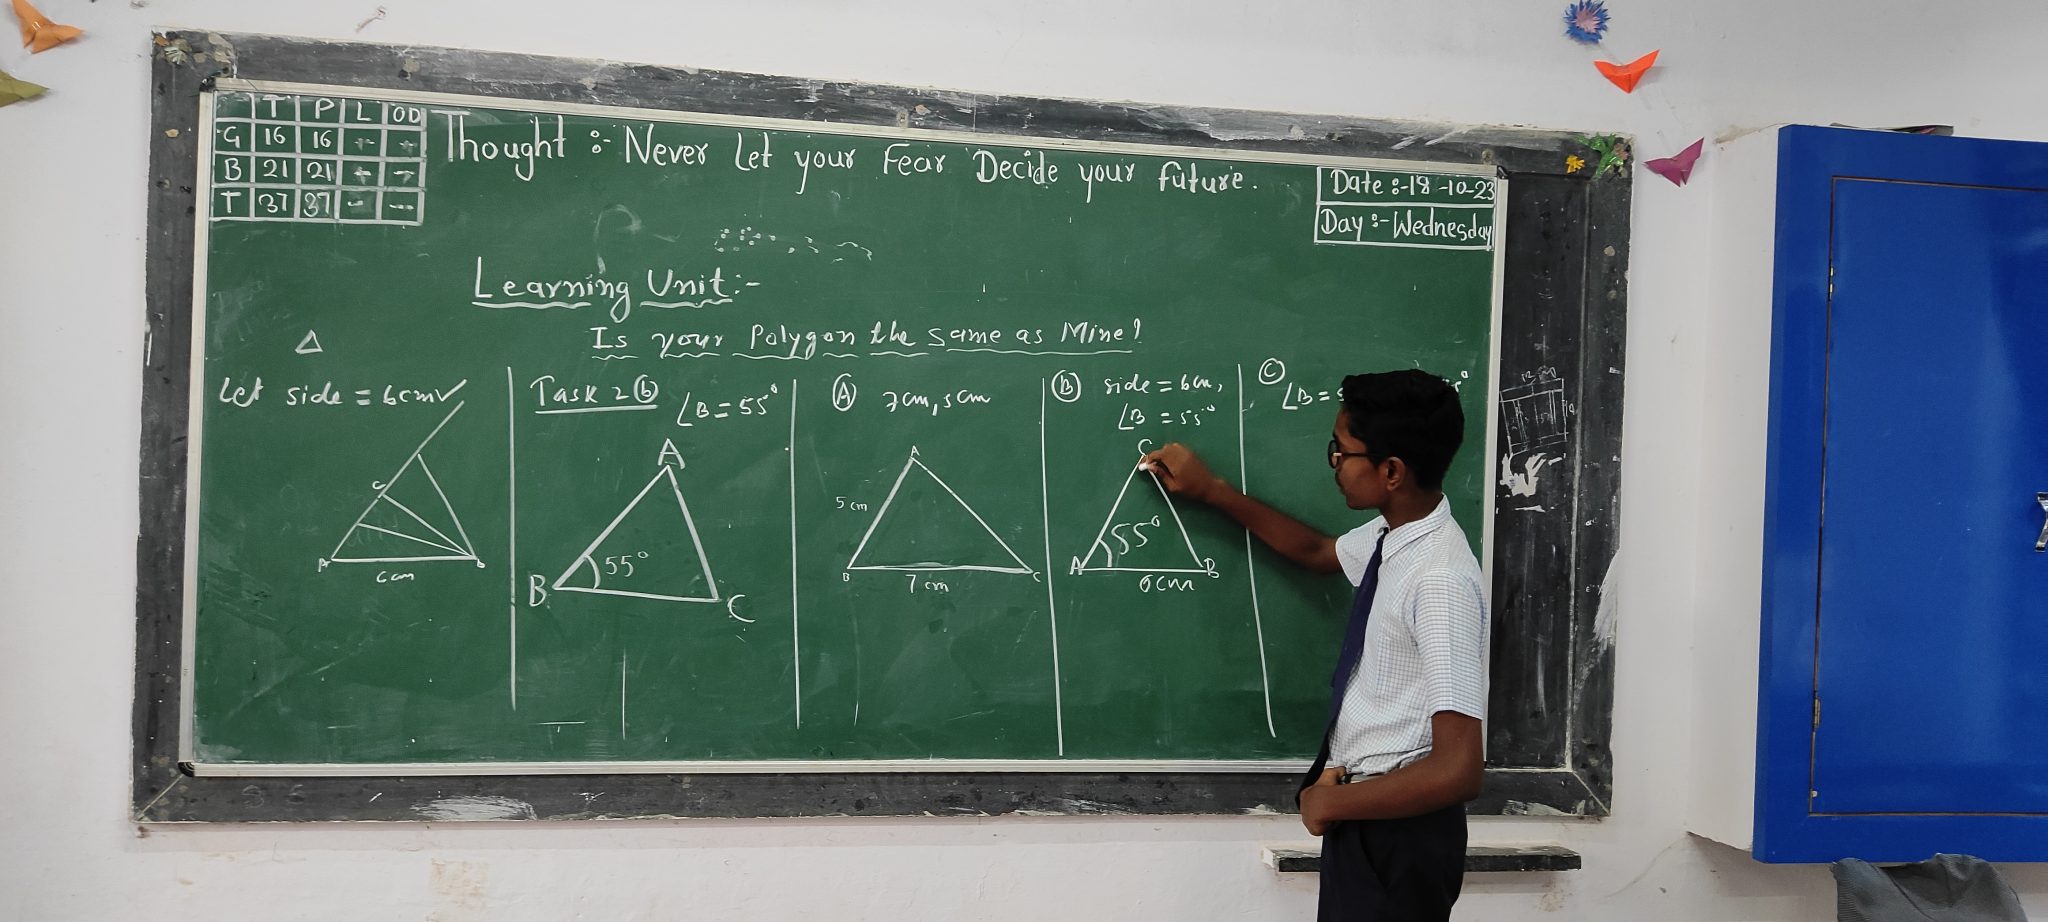 T P L OD
G 16 16 - -
B 21 21 - -
T 37 37 - --
Thought :- Never Let your Fear Decide your future.
Date :-18-10-23
Day :- Wednesday
Learning Unit:-
Is your Polygon the same as Mine?
Let side = 6cm
A
C
6cm
Task 2 b
∠B = 55°
A
55°
B
C
A 7cm, 5cm
A
5 cm
B
C
7 cm
B side = 6cm,
∠B = 55°
C
55°
A
B
6cm
C
∠B =